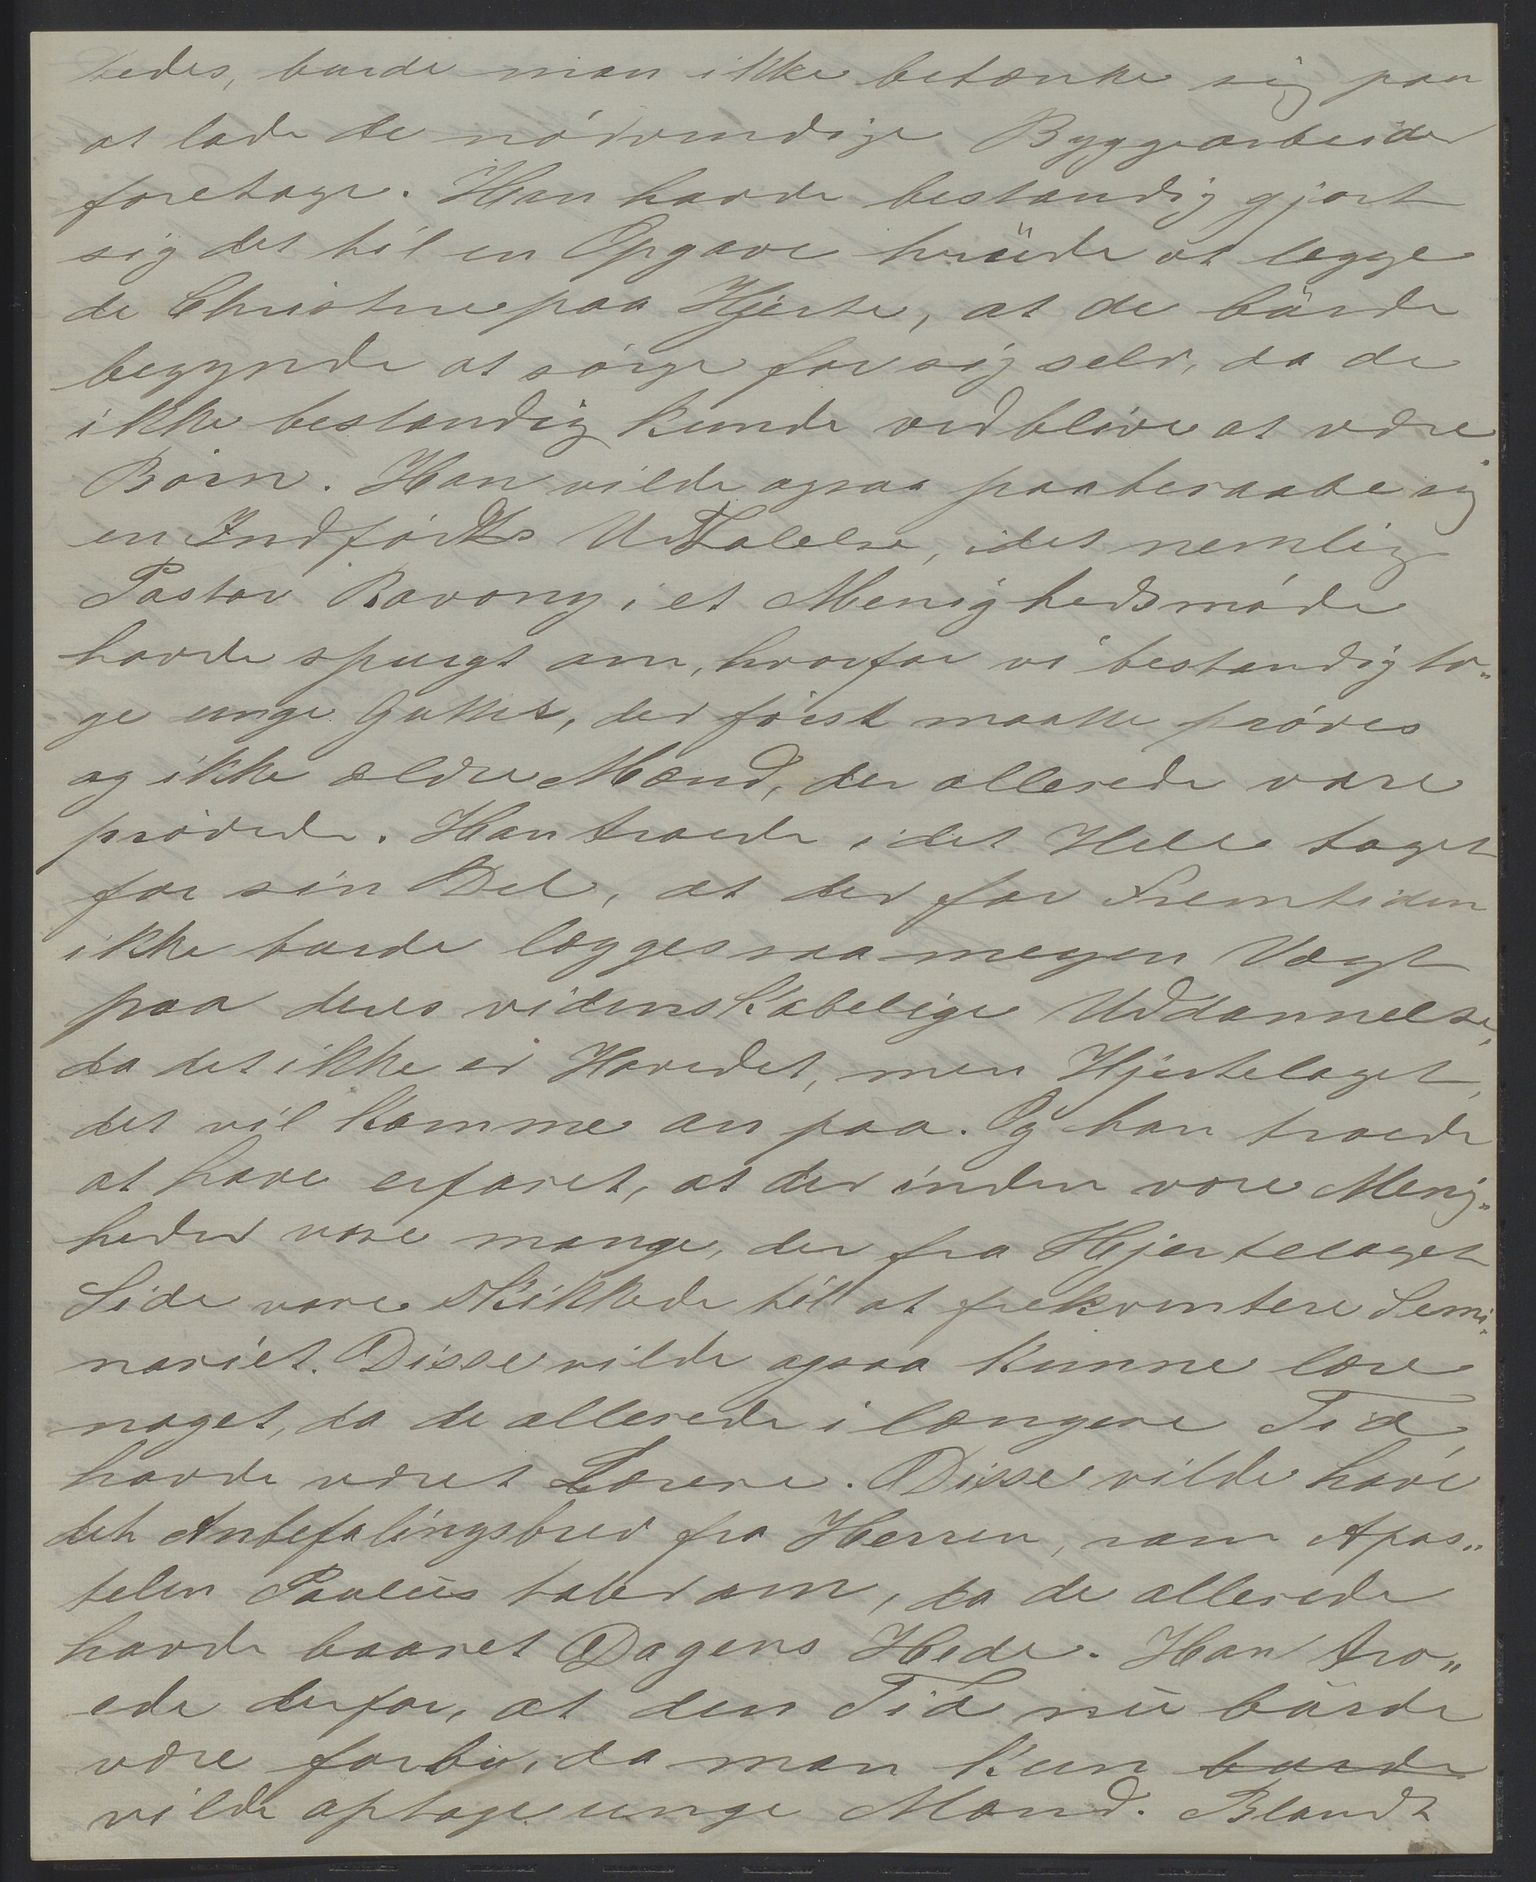 tedes, burde man ikke betænke sig paa
at lade de nödvendige Byggearbeider
foretage. Han havde bestandig gjort
sig det til en Opgave herüde at lægge
de Christne paa Hjerte, at de bürde
begynde at sörge for sig selv, da de
ikke bestandig kunde vedblive at være
Börn. Han vilde ogsaa paaberaabe sig
en Indfödts Udtalelse, idet nemlig
Pastor Ravony i et Menighedsmöde
havde spurgt om, hvorfor vi bestandig to„
ge unge Gutter, der först maatte pröves
og ikke ældre Mænd, der allerede vare
prövede. Han troede i det Hele taget
for sin Del, at der for Fremtiden
ikke burde lægges saa megen Vægt
paa deres videnskabelige Uddannelse,
da det ikke er Hovedet, men Hjertelaget,
det vil komme an paa. Og han troede
at have erfaret, at der inden vore Menig„
heder vare mange, der fra Hjertelaget
Side vare skikkede til at frekventere Semi„
nariet. Disse vilde ogsaa kunne lære
noget, da de allerede i længere Tid,
havde været Lærere. Disse vilde have
det Anbefalingsbrev fra Herren, som Apos„
telen Paulüs taler om, da de allerede
havde baaret Dagens Hede. Han tro„
ede derfor, at den Tid nü bürde
være forbi, da man kun burde
vilde optage unge Mænd. Blandt